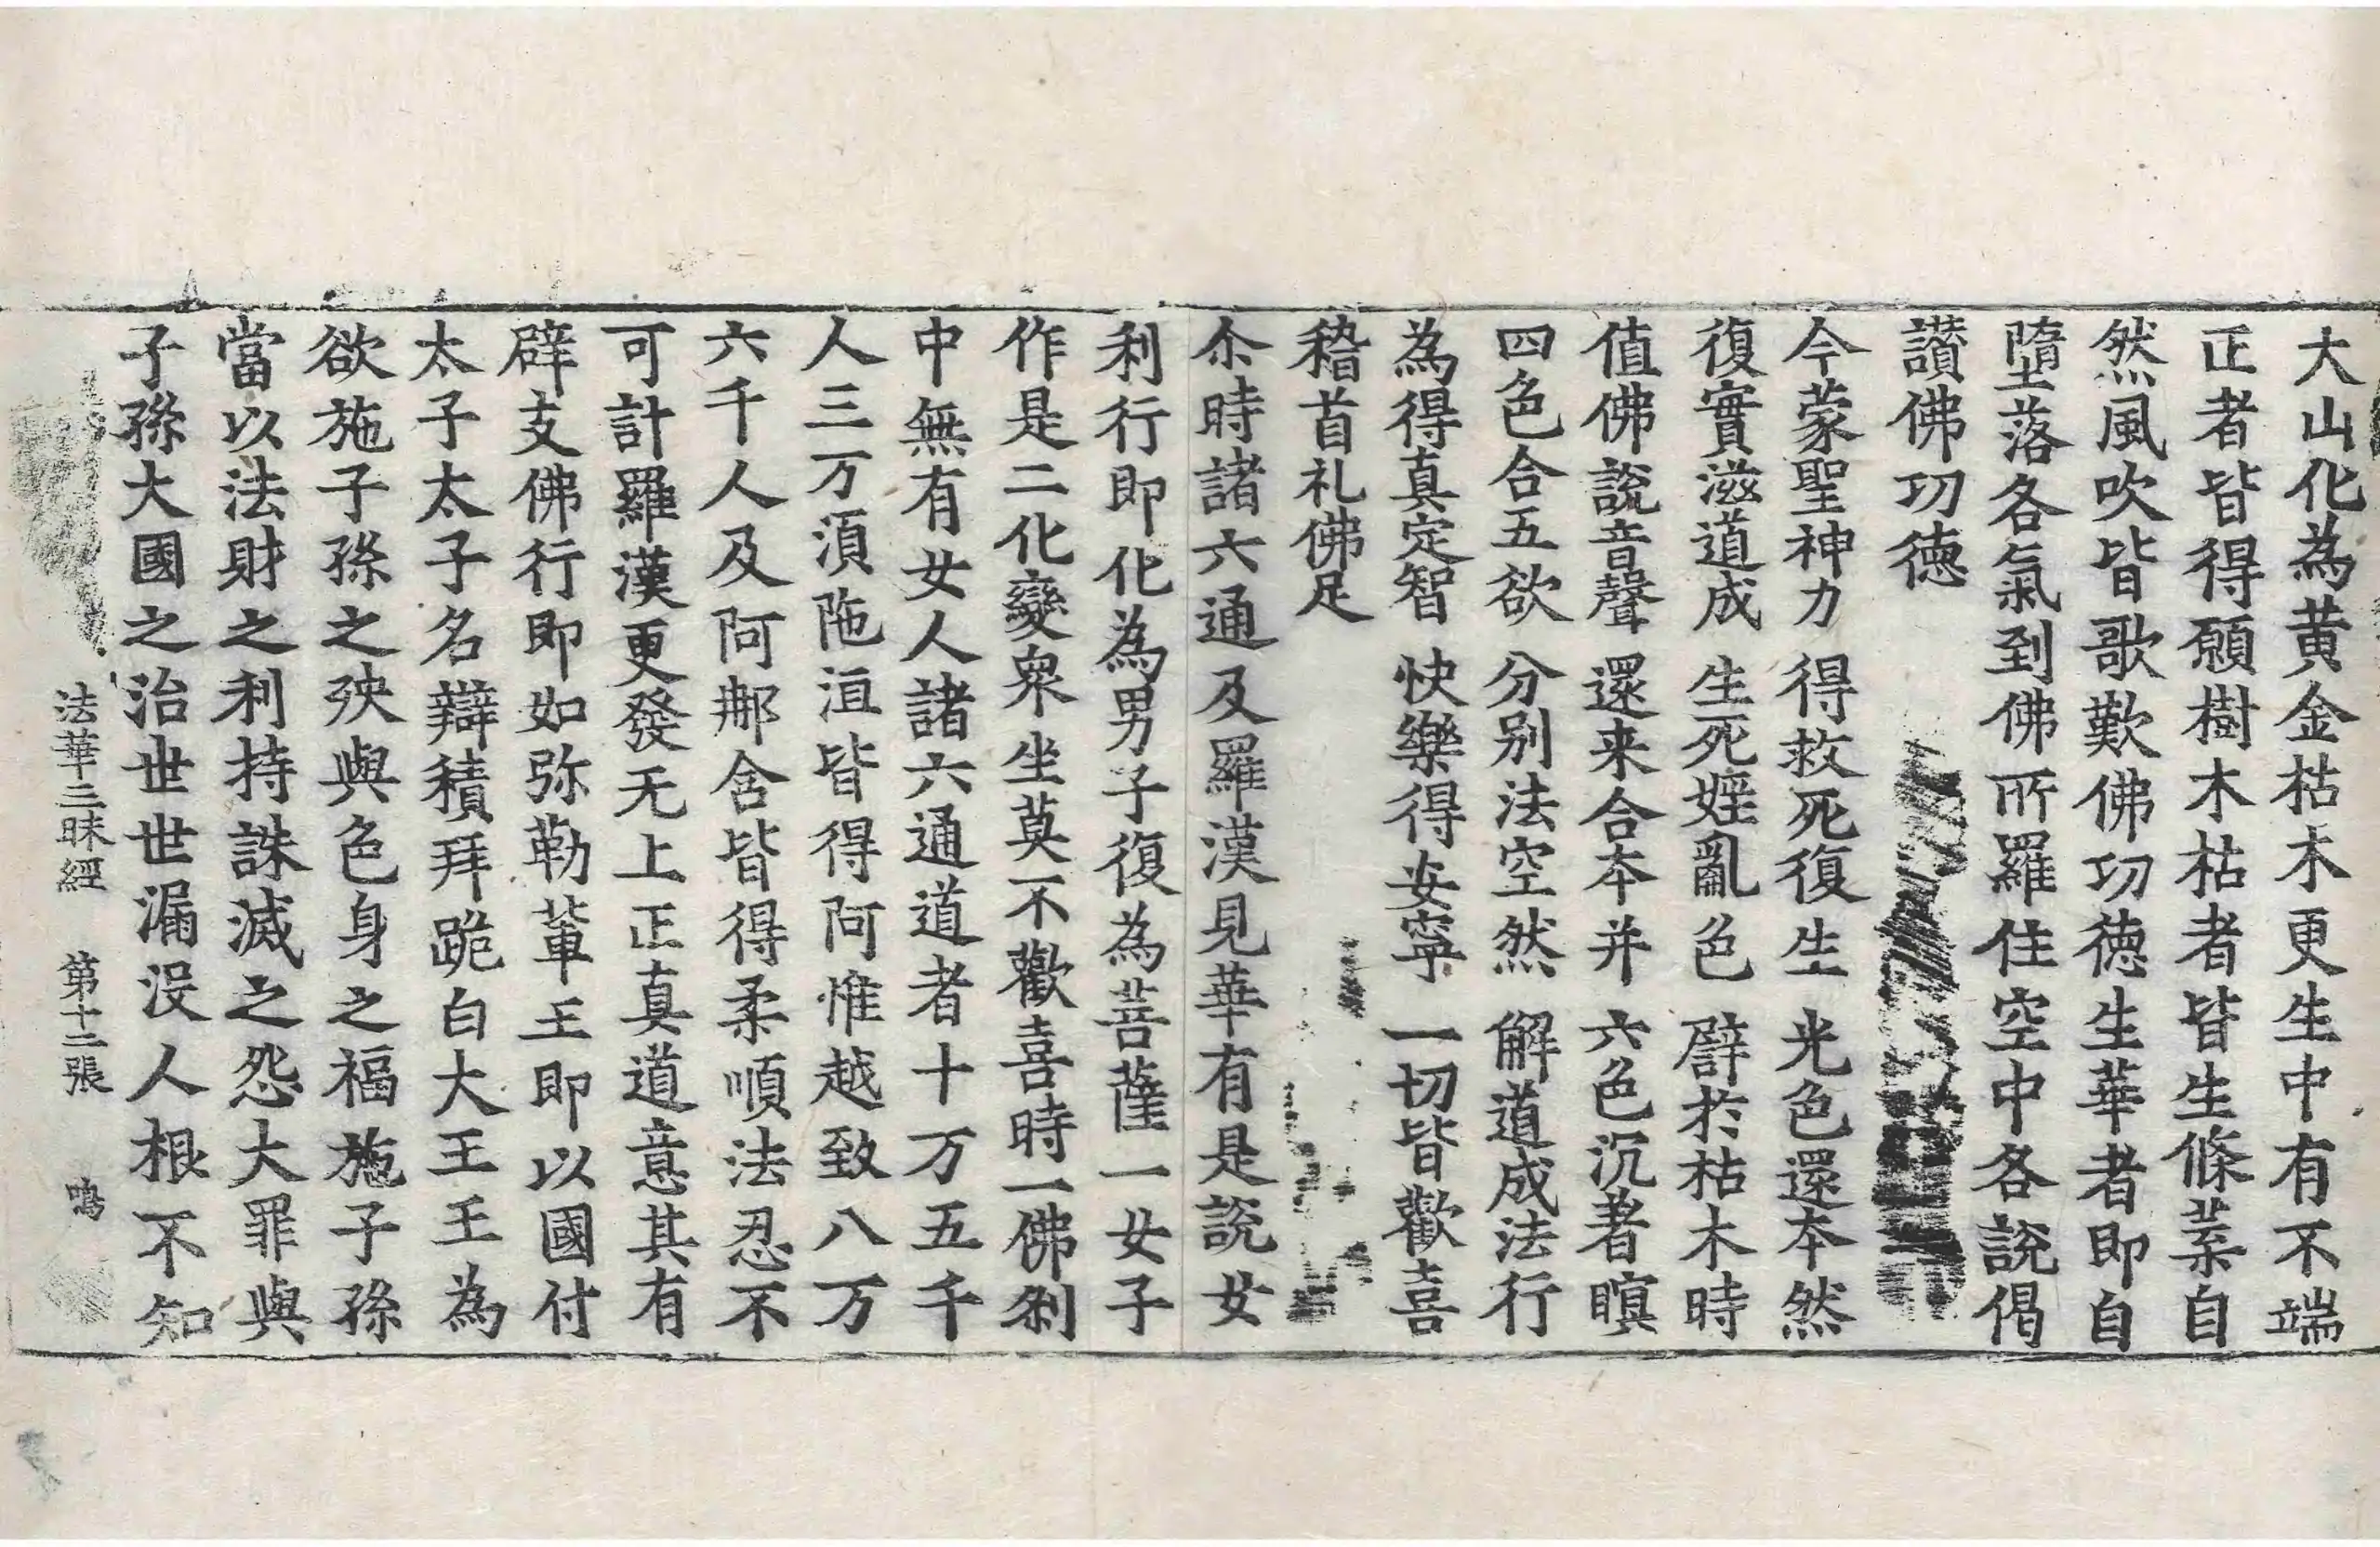 大山化為黄金枯木更生中有不端
正者皆得願樹木枯者皆生條葉自
然風吹皆歌歎佛功德生華者即自
墮落各氣到佛所羅住空中各說偈
讃佛功德
今蒙聖神力　得救死復生　光色還本然
復實滋道成　生死婬亂色　譬於枯木時
值佛說音聲　還来合本并　六色沉著瞑
四色合五欲　分别法空然　解道成法行
為得真定智　快樂得安寧　一切皆歡喜
稽首礼佛足
尒時諸六通及羅漢見華有是說女
利行即化為男子復為菩薩一女子
作是二化變衆坐莫不歡喜時一佛刹
中無有女人諸六通道者十万五千
人三万湏陁洹皆得阿惟越致八万
六千人及阿那含皆得柔順法忍不
可計羅漢更發无上正真道意其有
辟支佛行即如弥勒輩王即以國付
太子太子名辯積拜跪白大王王為
欲施子孫之殃與色身之福施子孫
當以法財之利持誅滅之怨大罪與
子孫大國之治世世漏没人根不知
法華三昧經　第十二張　鳴